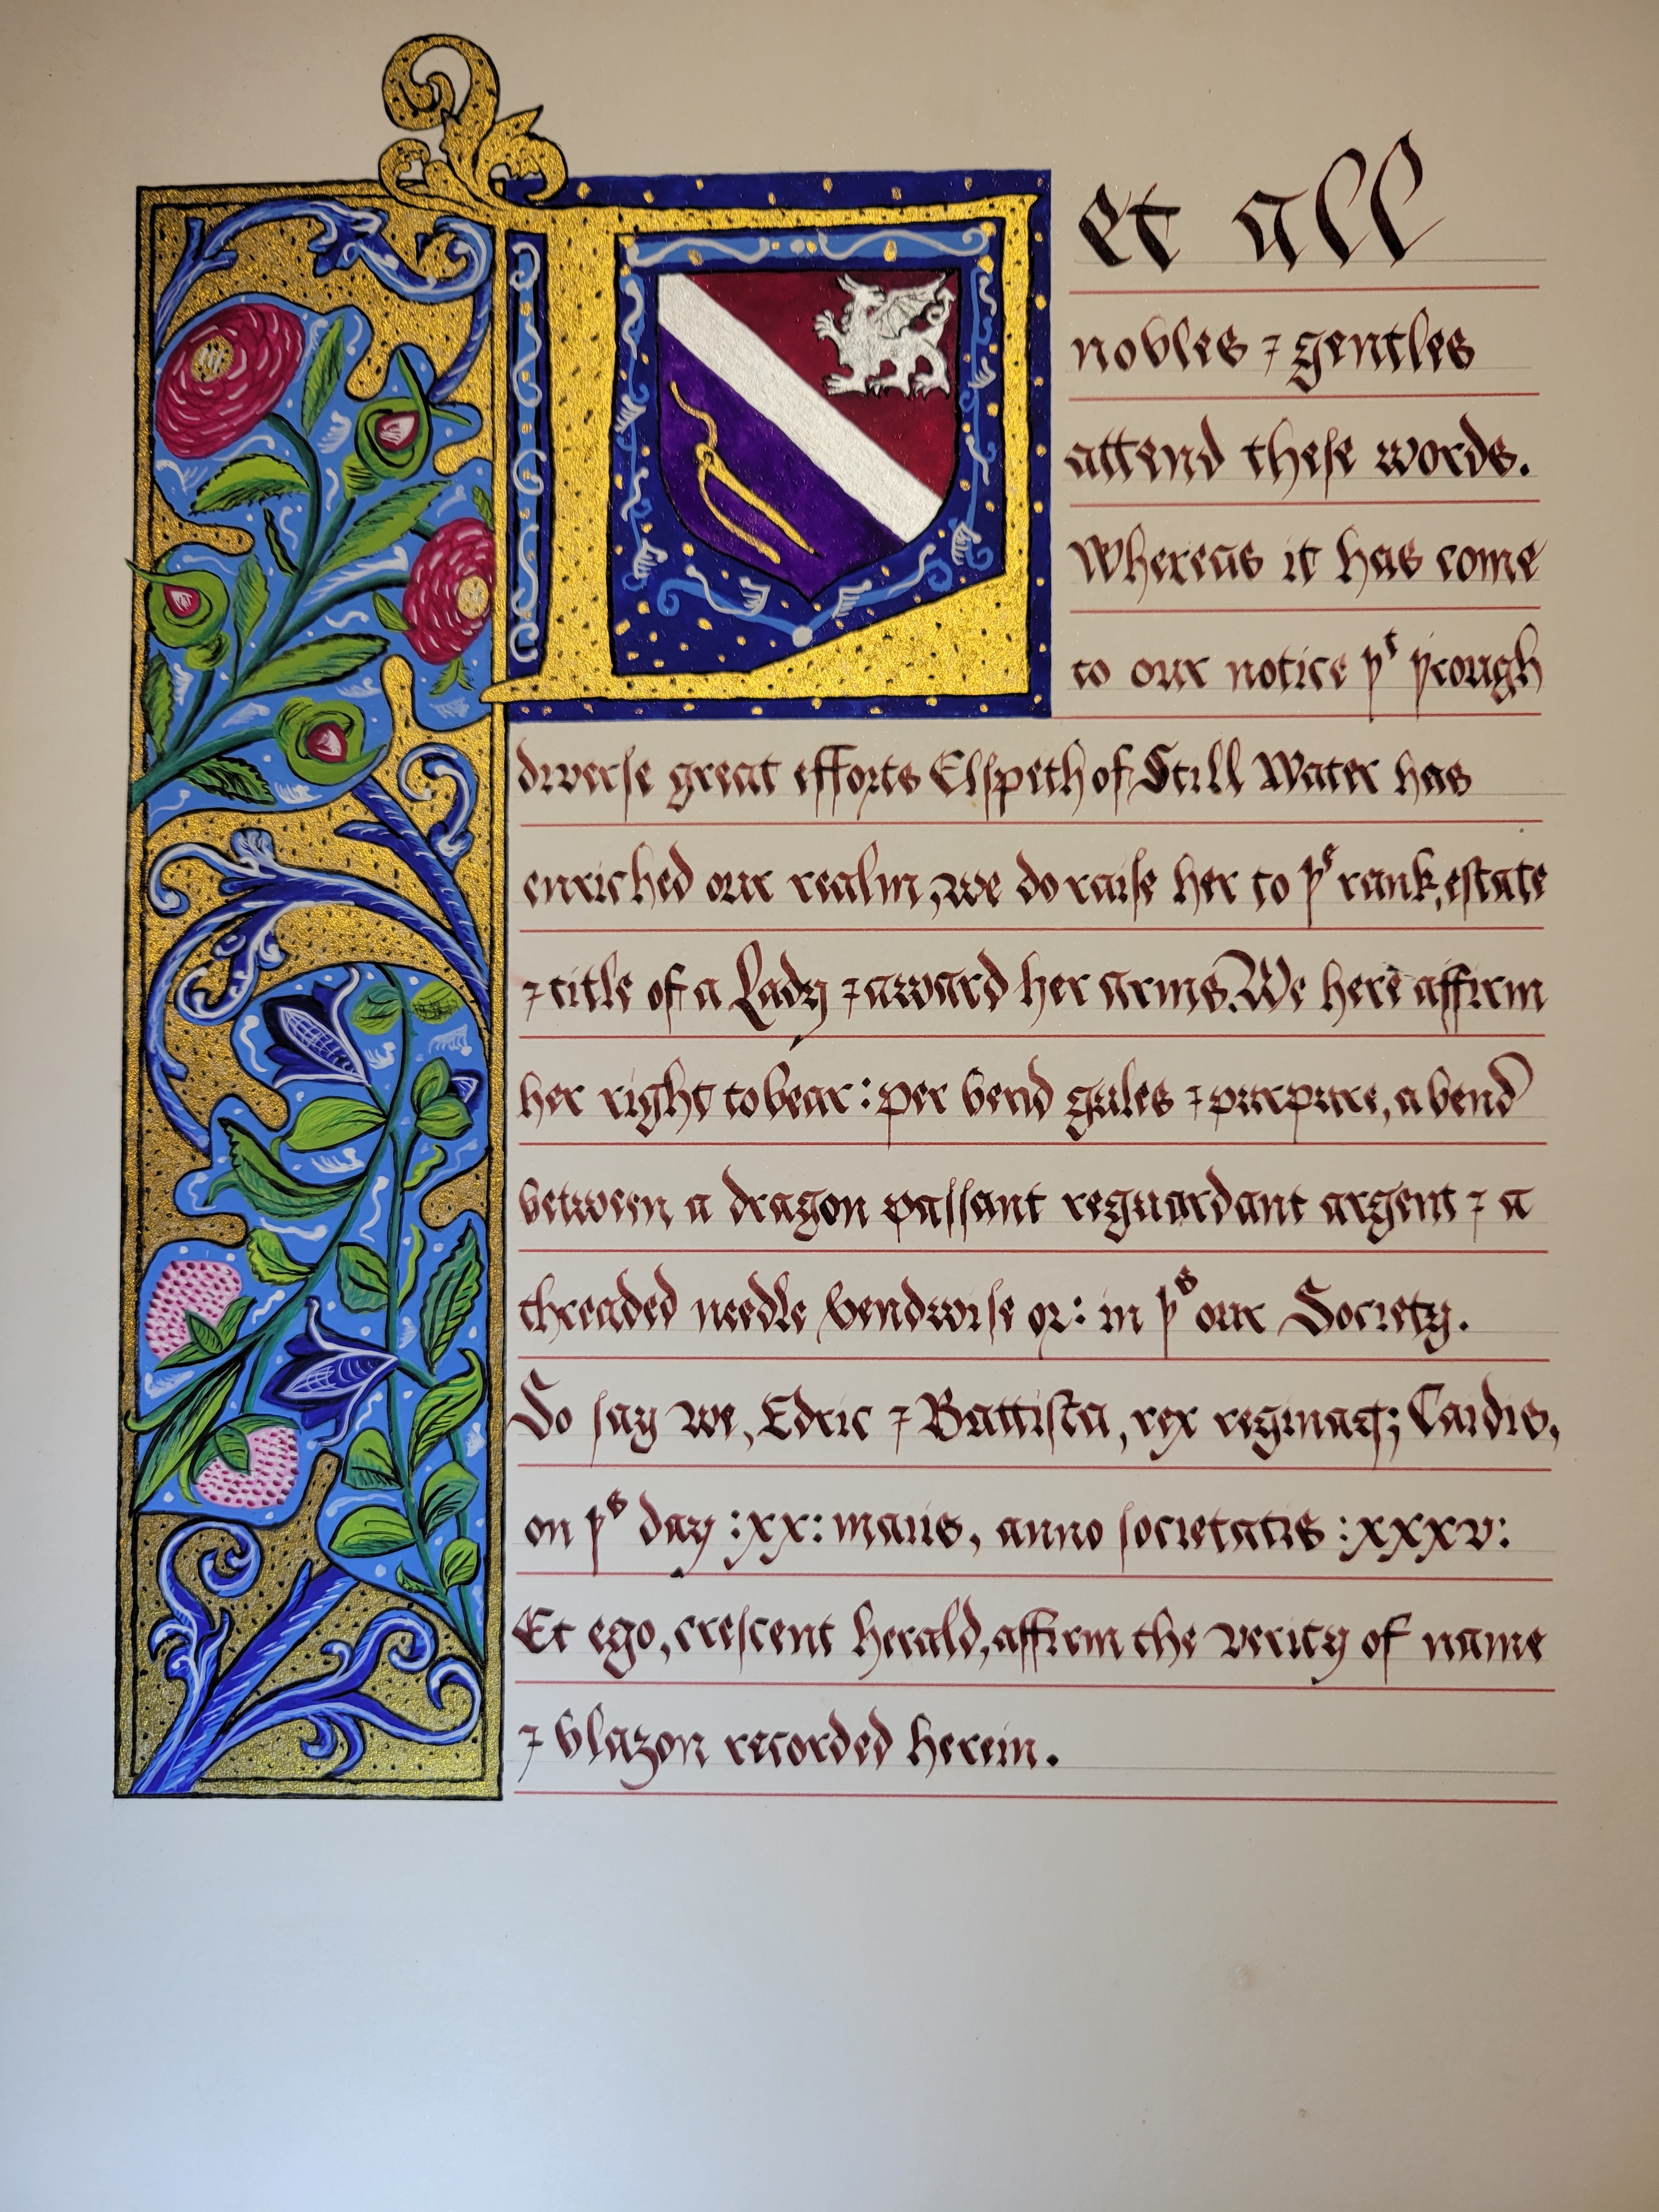 Let all
nobles ⁊ gentles
attend theſe words.
Whereas it has come
to our notice þᵗ þrough
diverſe great efforts Elſpeth of Still Water has
enriched our realm, we do raiſe her to þᵉ rank, eſtate
⁊ title of a Lady ⁊ award her arms. We here affirm
her right to bear : per bend gules ⁊ purpure, a bend
between a dragon paſſant reguardant argent ⁊ a
threaded needle bendwiſe or : in þˢ our Society.
So ſay we, Edric ⁊ Battiſta, rex reginaq; Caidis,
on þˢ day :xx: maiis, anno ſocietatis :xxxv:
Et ego, creſcent herald, affirm the verity of name
⁊ blazon recorded herein.